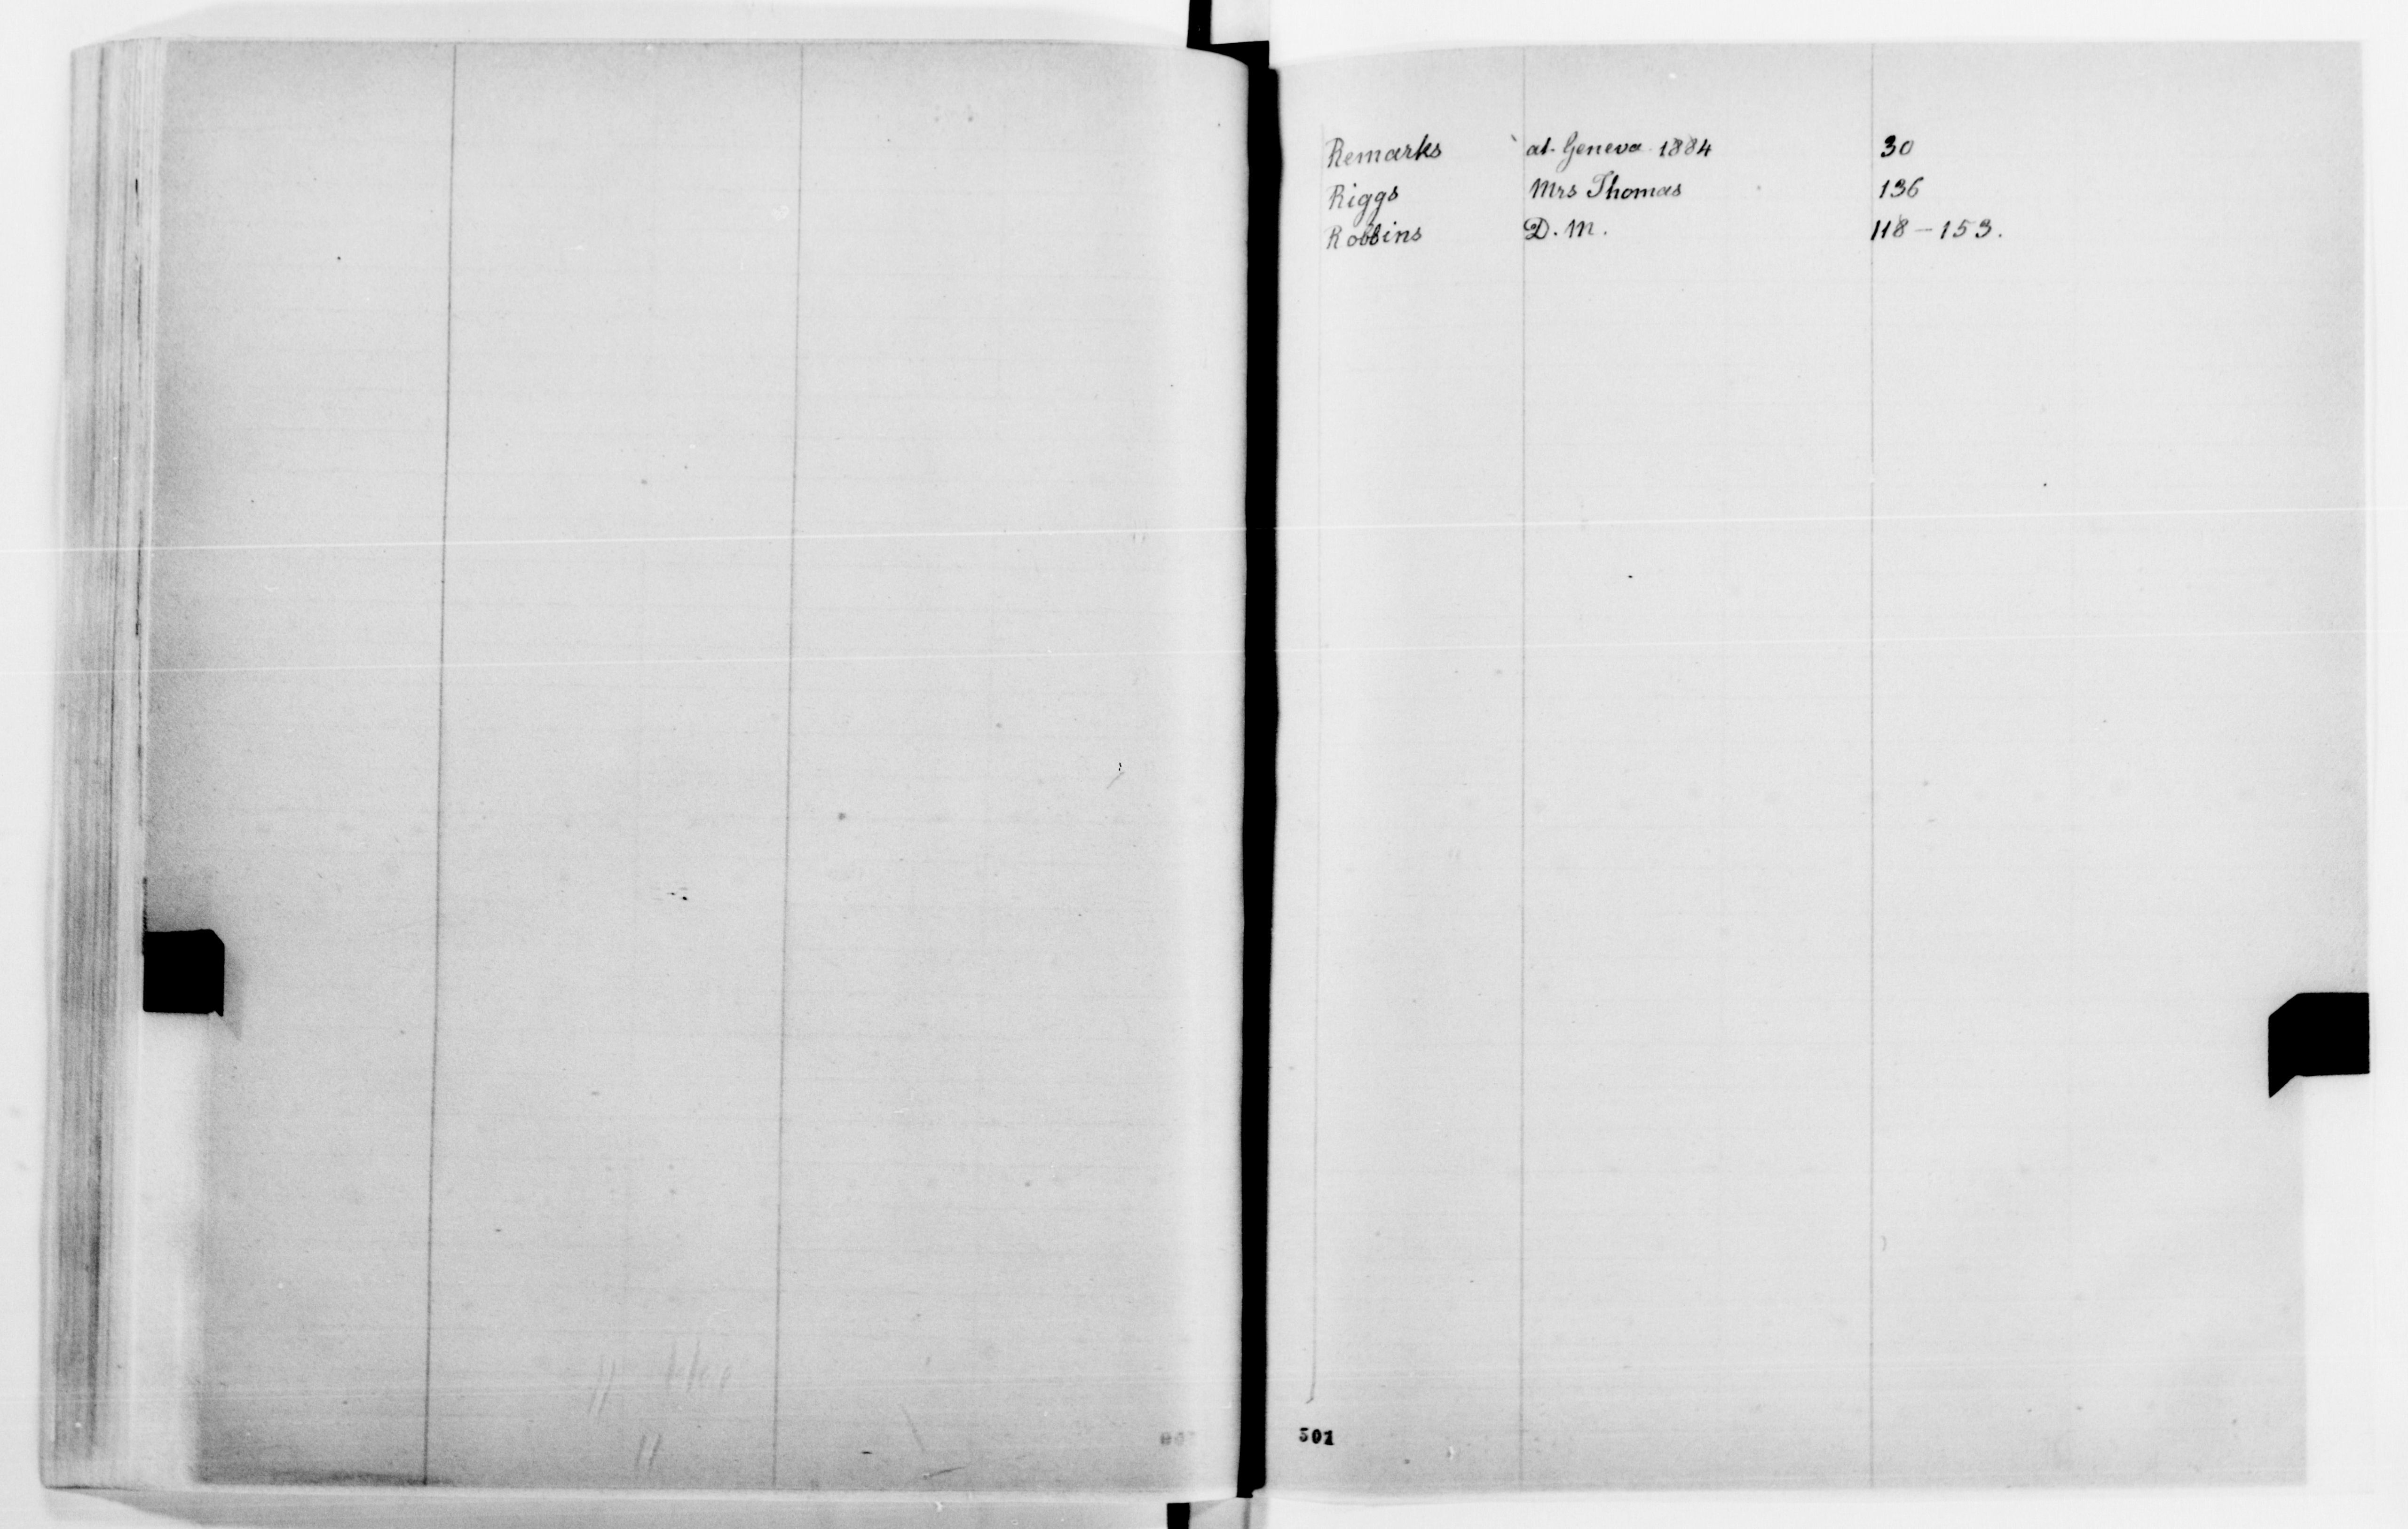 Remarks at Geneva 1884 30
Riggs Mrs Thomas 136
Robbins D. M. 118 - 153.
501